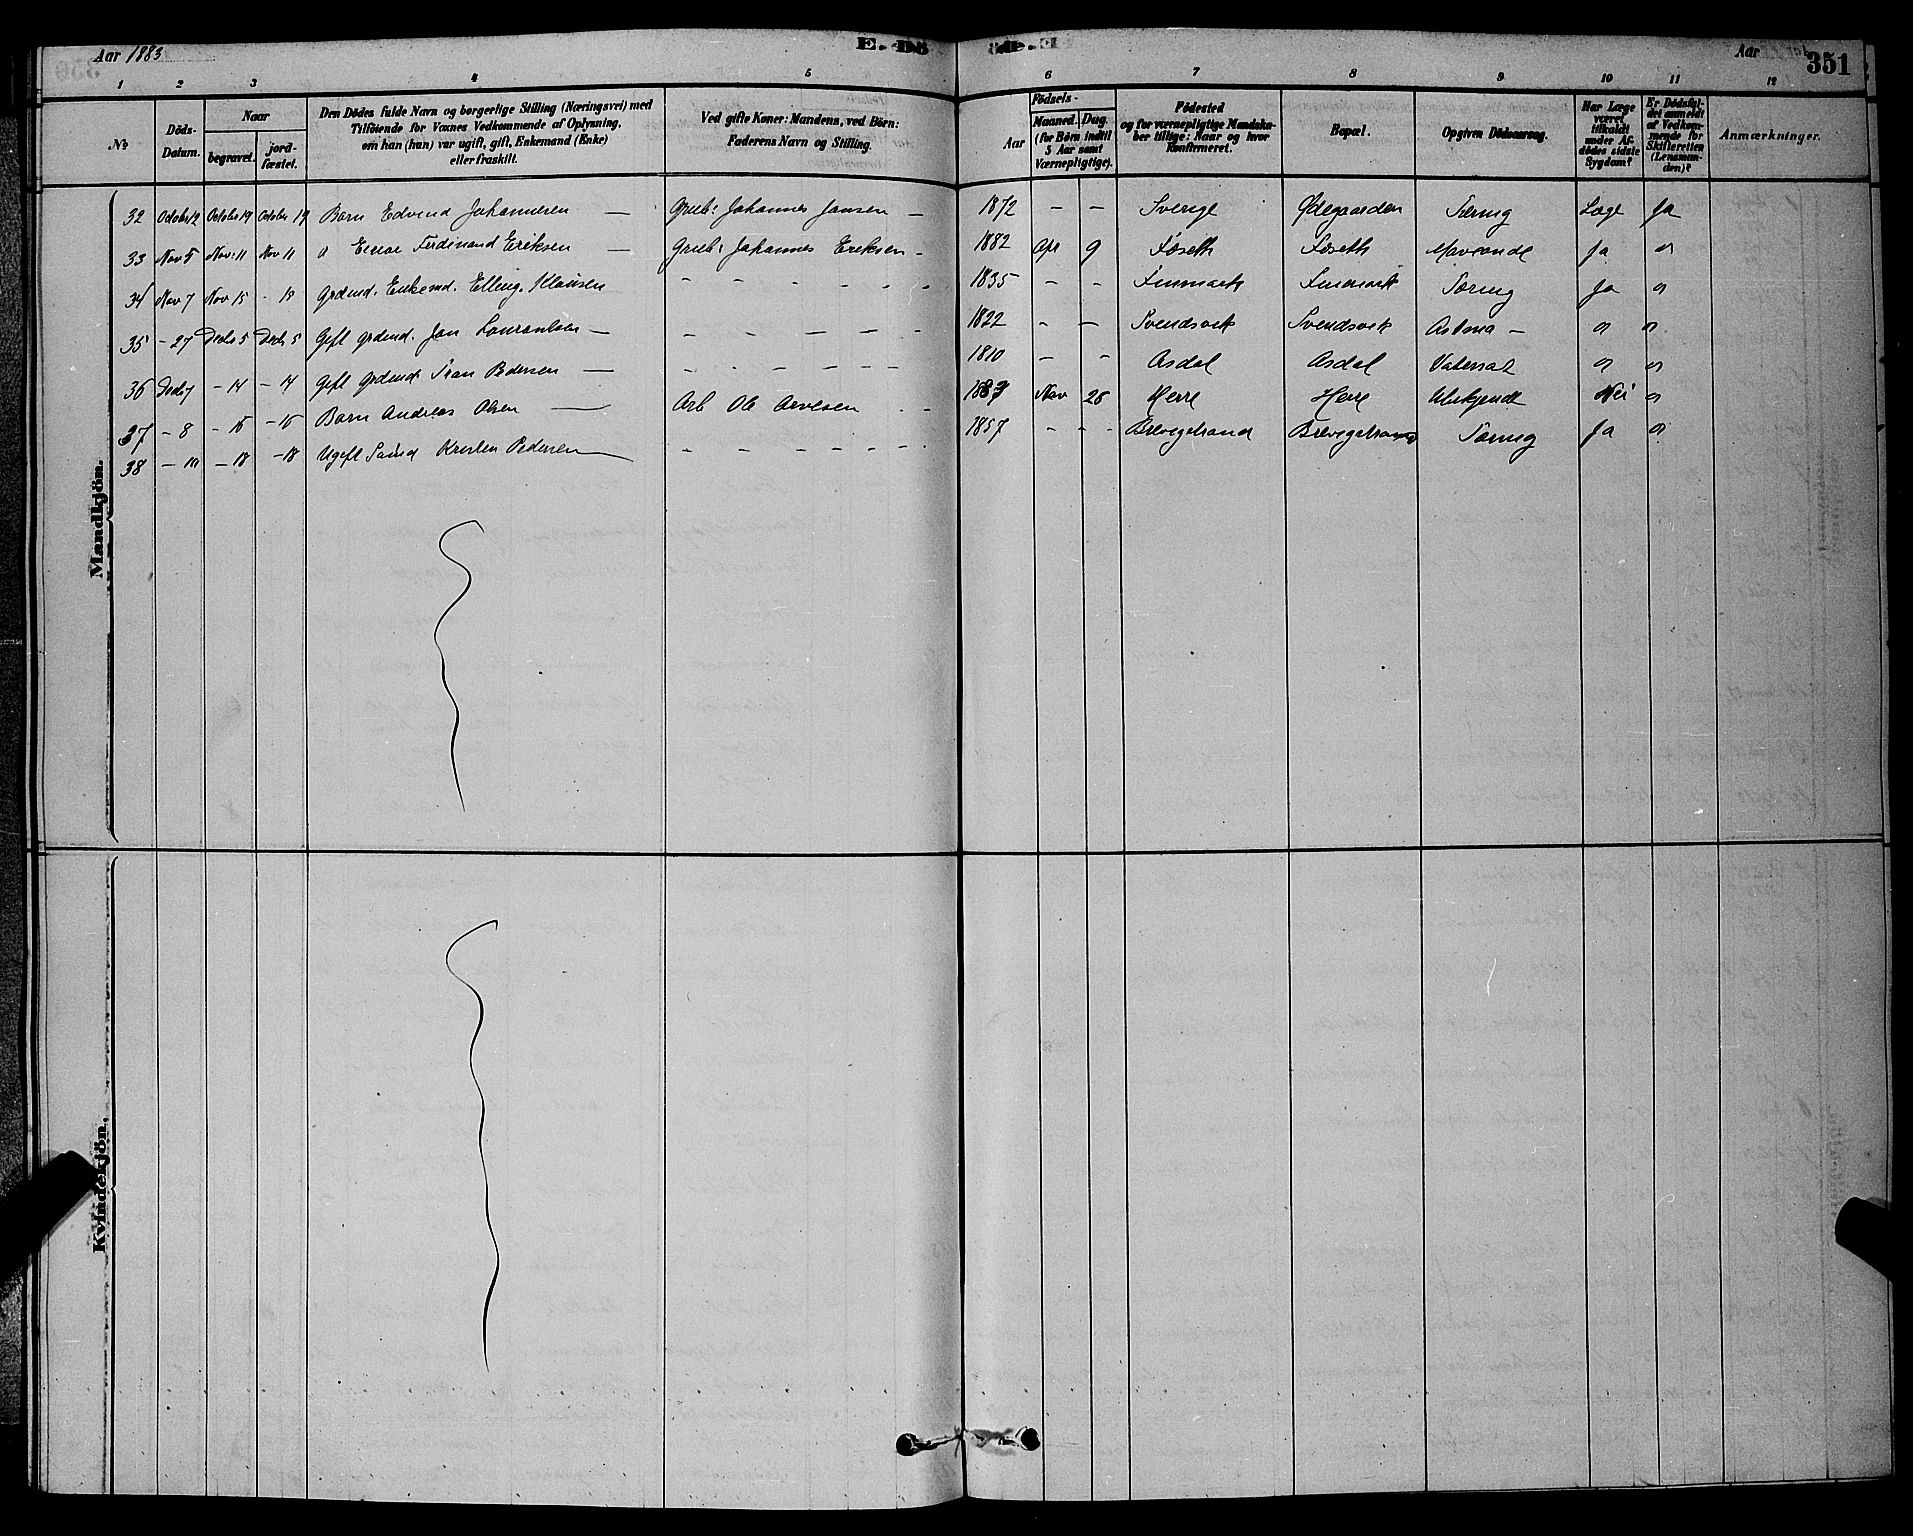 Aar 1883
E. Dö
Aar
351
1 2 3 4 5 6 7 8 9 10 11 12
№
Döds-
Datum.
Naar
begravet.
jord-
fæstet.
Den Dödes fulde Navn og borgerlige Stilling (Næringsvei) med
Tilföiende for Voxnes Vedkommende af Oplysning,
om han (hun) var ugift, gift, Enkemand (Enke)
eller fraskilt.
Ved gifte Koner: Mandens, ved Börn:
Faderens Navn og Stilling.
Födsels-
Aar
Maaned. Dag.
(for Börn indtil
5 Aar samt
Værnepligtige).
Födested
og for værnepligtige Mandska-
ber tillige: Naar og hvor
konfirmeret.
Bopæl.
Opgiven Dödsaarsag.
Har Læge
været
tilkaldt
under Af-
dödes sidste
Sygdom?
Er Dödsfal-
det anmeldt
af Vedkom-
mende for
Skifteretten
(Lensman-
den)?
Anmærkninger.
Mandkjön.
32 October 12 October 19 October 19 Barn Edvind Johannesen — Grub: Johannes Jansen — 1872 - - Sverige Ødegaarden Tæring Læge Ja
33 Nov 5 Nov: 11 Nov 11 " Ferdinand Eriksen — Grub: Johannes Eriksen - 1882 Apr 9 Foseth Foseth Maveonde Ja "
34 Nov 7 Nov 15 - 15 Grdmd. Enkemd. Elling Klausen - - - - - - 1835 - - Tæring Ja "
35 - 27 Decbr 5 Decb 5 Gift grdmd. Jan — - - - - - 1822 - - Svendsvik Svendsvik Astma - " "
36 Decb 7 - 14 - 14 Gift Grdmd Pedersen — - - - - - - 1810 - - Asdal Asdal Vatersot " "
37 - 8 - 15 - 15 Barn Andreas Olsen — Arb Ole - - 1883 Nov 28 Herre Herre Ubekjendt Nei "
38 - 10 - 18 - 18 Ugift Sømd Kristen Pedersen — - - - - - - 1857 - - - Brevigstrand Brevigstrand Tæring Ja "
Kvindekjön.